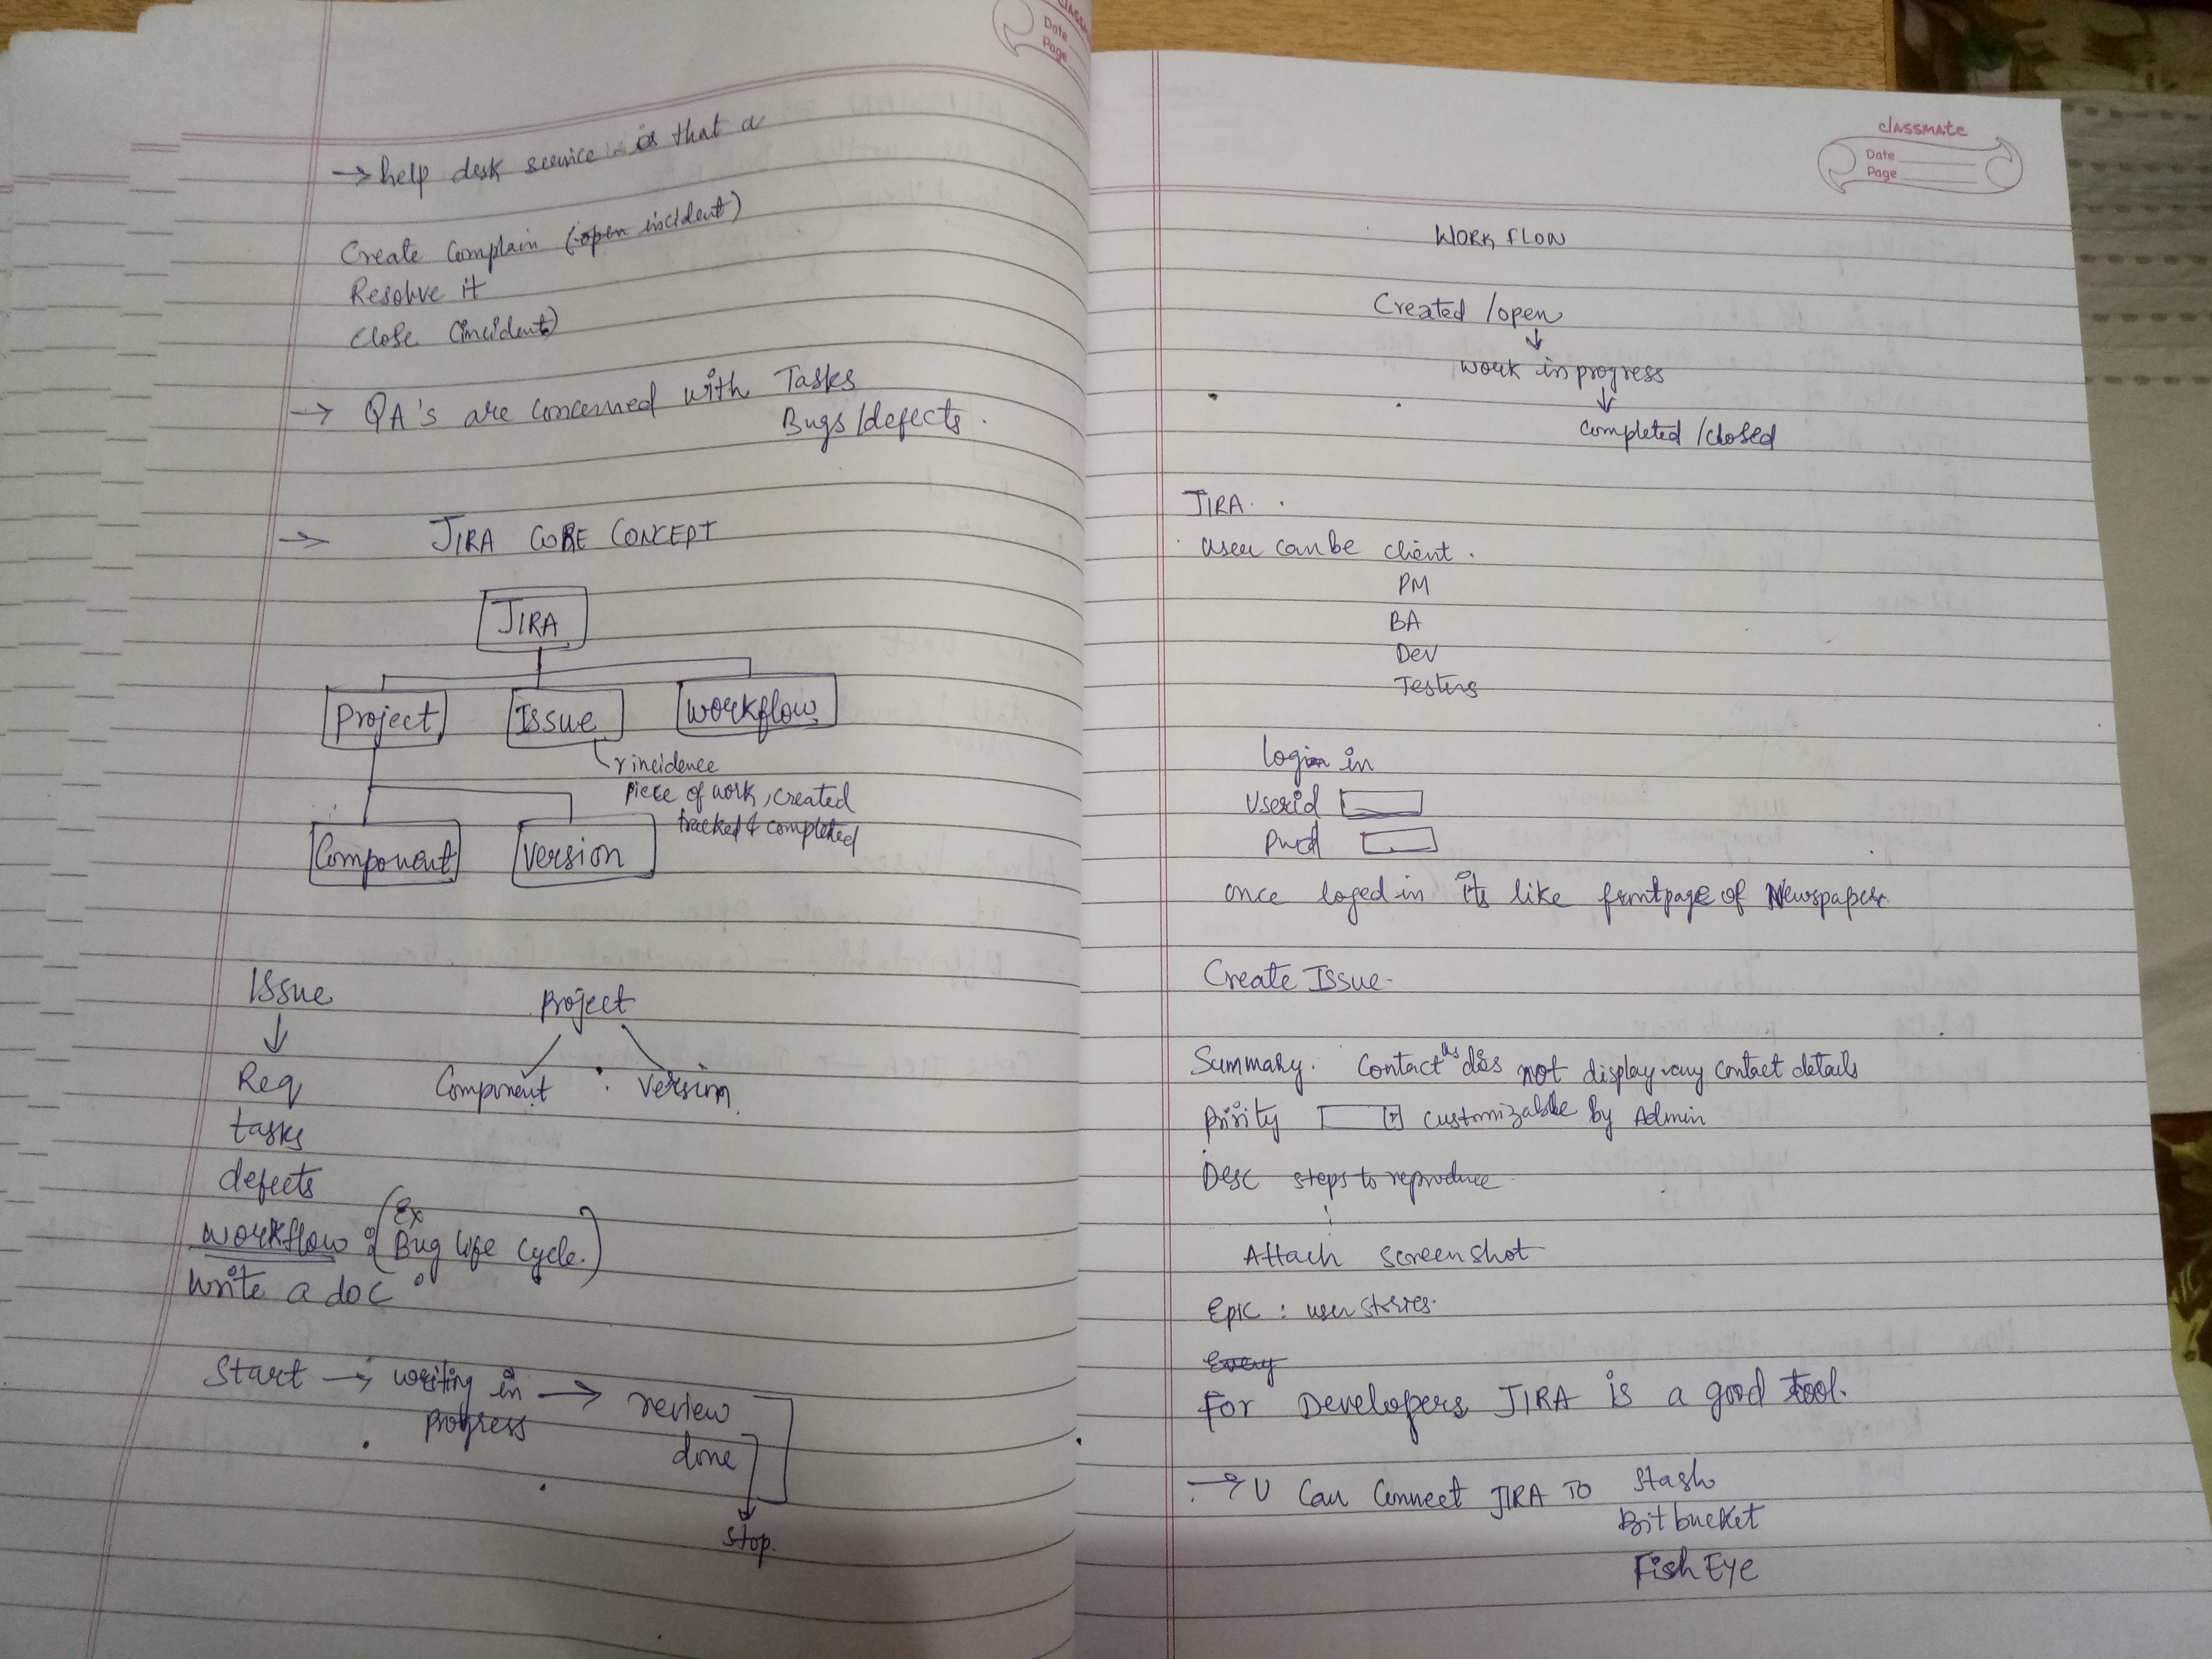 classmate
Date
Page
→ help desk service is that a
Create Complain (open incident)
Resolve it
Close (incident)
→ QA's are concerned with Tasks
Bugs/defects.
→ JIRA CORE CONCEPT
JIRA
Project Issue Workflow
incidence
piece of work, created
tracked & completed
Component Version
Issue
↓
Req
tasks
defects
Project
Component Version
Workflow : (Ex Bug life cycle.)
Write a doc :
Start → writing in progress → review
done
Stop.
classmate
Date
Page
WORK FLOW
Created / open
↓
work in progress
↓
Completed / closed
JIRA.
user can be client.
PM
BA
Dev
Testers
login in
Userid
Pwd
once loged in its like frontpage of Newspaper
Create Issue.
Summary. Contact us does not display any contact details
Pririty customizable by Admin
Desc steps to reproduce
Attach screenshot
Epic : user stories.
Every
For Developers JIRA is a good tool.
→ U Can Connect JIRA TO Stash
Bitbucket
Fish Eye